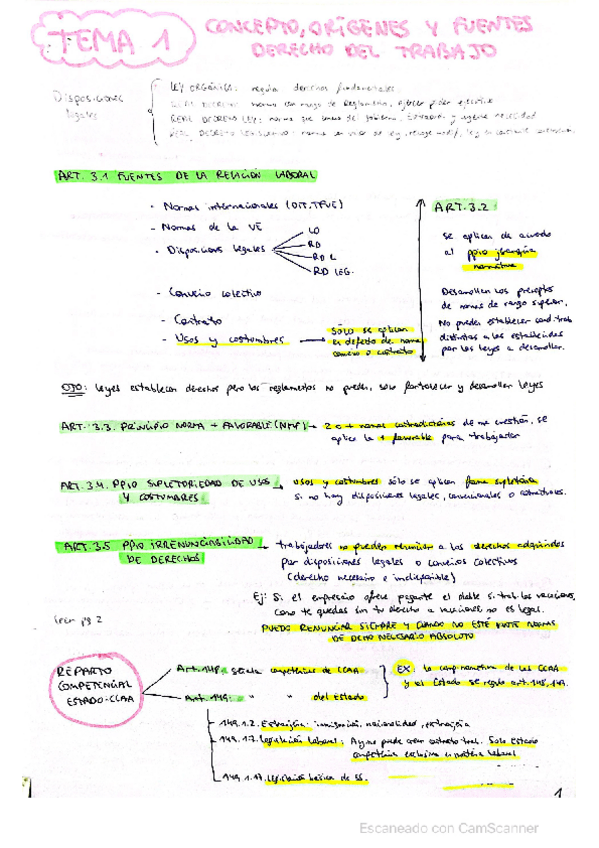 TEMA 1
CONCEPTO, ORÍGENES Y FUENTES
DERECHO DEL TRABAJO
Disposiciones
legales
LEY ORGÁNICA: regula derechos fundamentales
REAL DECRETO: norma con rango de Reglamento, poder ejecutivo
REAL DECRETO LEY: norma que del gobierno, y urgente necesidad
REAL DECRETO
ART. 3.1 FUENTES DE LA RELACIÓN LABORAL
- Normas internacionales (OIT, TFUE)
- Normas de la UE
- Disposicions legales
LO
RD
RD L
RD LEG.
- Convenio colectivo
- Contrato
- Usos y costumbres → Sólo se aplican
en defecto de norma
convenio o contrato
ART. 3.2
se aplican de acuerdo
al ppio jerarquía
normativa
Desarrollan los preceptos
de normas de rango superior.
No pueden establecer cond. trab
distintas a las establecidas
por las leyes a desarrollar.
OJO: leyes establecen derechos pero los reglamentos no pueden, solo fortalecer y desarrollar leyes
ART. 3.3. PRINCIPIO NORMA + FAVORABLE (NMF) → 2 o + normas contradictorias de una cuestión, se
aplica la + favorable para trabajador
ART. 3.4. PPIO SUPLETORIEDAD DE USOS
Y COSTUMBRES
→ Usos y costumbres sólo se aplican forma supletoria
si no hay disposiciones legales, convencionales o contractuales.
ART. 3.5 PPIO IRRENUNCIABILIDAD
DE DERECHOS
→ trabajadores no pueden renunciar a los derechos adquiridos
por disposiciones legales o convenios colectivos
(derecho necesario e indisponible)
Ej: Si el empresario ofrece pagarte el doble si trabajas vacaciones,
como te quedas sin tu derecho a vacaciones no es legal.
PUEDO RENUNCIAR SIEMPRE Y CUANDO NO ESTÉ NORMAS
DE DCHO NECESARIO ABSOLUTO
leer pg 2
REPARTO
COMPETENCIAL
ESTADO-CCAA
Art. 148: señala competencias de CCAA
Art. 149: " " del Estado
EX: la comp. normativa de las CCAA
y el Estado se regula art. 148, 149.
149.1.2. Extranjería: inmigración, nacionalidad, extranjería
149.1.7. Legislación laboral: puede crear contrato trab. Solo Estado
competencia exclusiva en materia laboral
149.1.17. Legislación básica de SS.
1
Escaneado con CamScanner